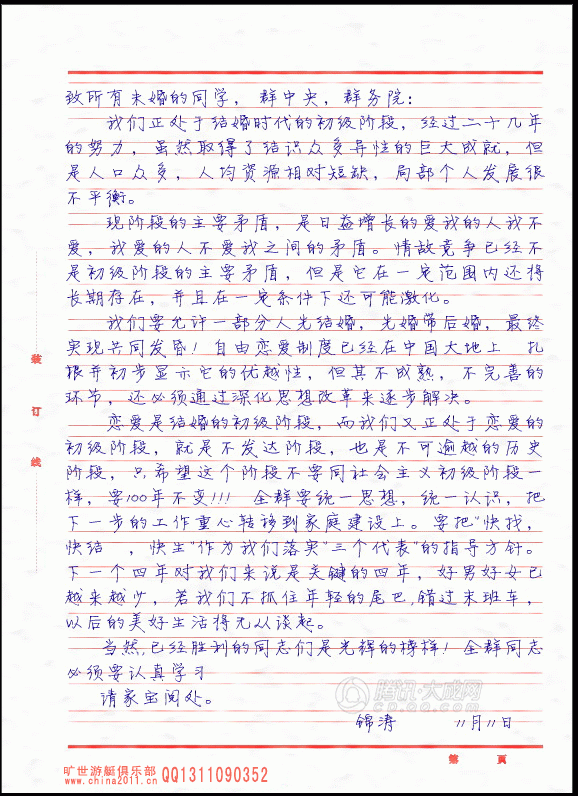 致所有未婚的同学，群中央，群务院：
我们正处于结婚时代的初级阶段，经过二十几年
的努力，虽然取得了结识众多异性的巨大成就，但
是人口众多，人均资源相对短缺，局部个人发展很
不平衡。
现阶段的主要矛盾，是日益增长的爱我的人我不
爱，我爱的人不爱我之间的矛盾。情敌竞争已经不
是初级阶段的主要矛盾，但是它在一定范围内还将
长期存在，并且在一定条件下还可能激化。
我们要允许一部分人先结婚，先婚带后婚，最终
实现共同发昏！自由恋爱制度已经在中国大地上 扎
根并初步显示它的优越性，但其不成熟，不完善的
环节，还必须通过深化思想改革来逐步解决。
恋爱是结婚的初级阶段，而我们又正处于恋爱的
初级阶段，就是不发达阶段，也是不可逾越的历史
阶段，只希望这个阶段不要同社会主义初级阶段一
样，要100年不变!!! 全群要统一思想，统一认识，把
下一步的工作重心转移到家庭建设上。要把"快找，
快结 ，快生"作为我们落实"三个代表"的指导方针。
下一个四年对我们来说是关键的四年，好男好女已
越来越少，若我们不抓住年轻的尾巴,错过末班车，
以后的美好生活将无从谈起。
当然,已经胜利的同志们是光辉的榜样！全群同志
必须要认真学习
请家宝阅处。
锦涛 11月11日
装
订
线
腾讯·大成网
cd.qq.com
旷世游艇俱乐部
www.china2011.cn
QQ1311090352
第 页